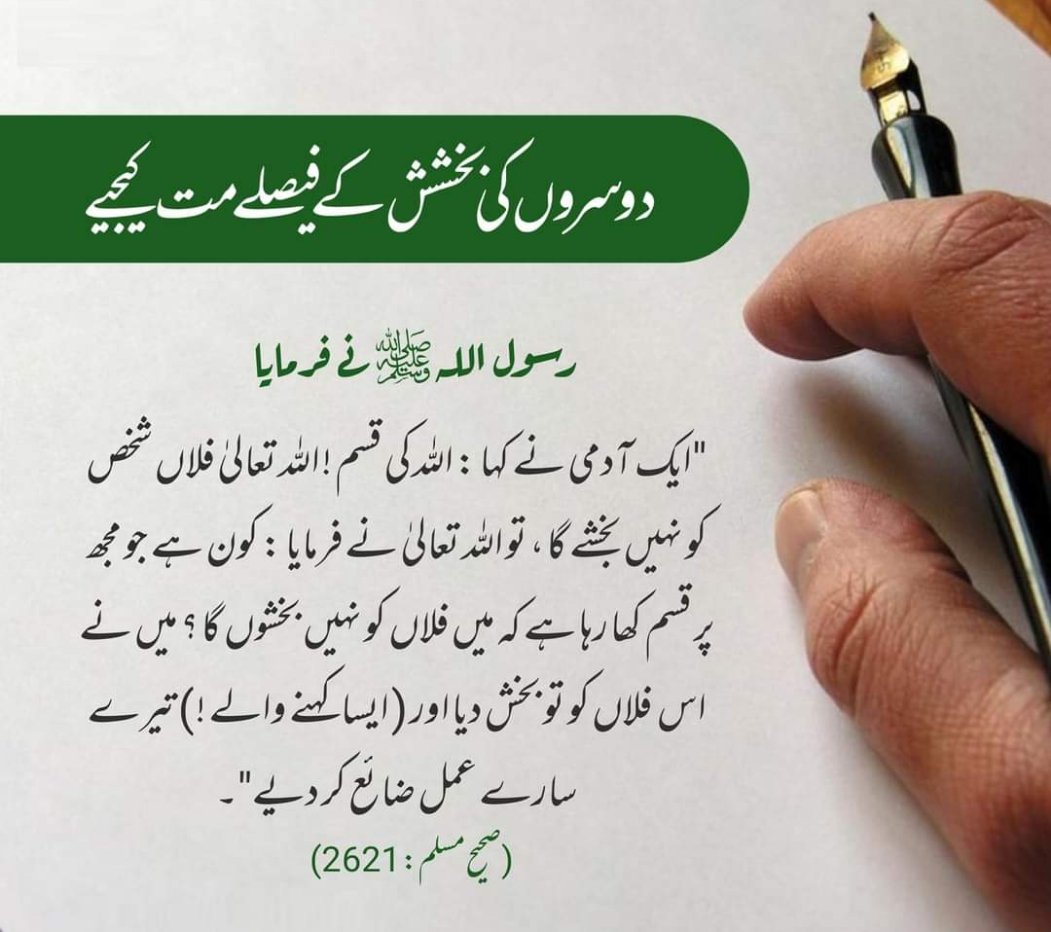 دوسروں کی بخشش کے فیصلے مت کیجیے
رسول اللہ ﷺ نے فرمایا
"ایک آدمی نے کہا : اللہ کی قسم ! اللہ تعالیٰ فلاں شخص
کو نہیں بخشے گا ، تو اللہ تعالیٰ نے فرمایا : کون ہے جو مجھ
پر قسم کھا رہا ہے کہ میں فلاں کو نہیں بخشوں گا ؟ میں نے
اس فلاں کو تو بخش دیا اور (ایسا کہنے والے !) تیرے
سارے عمل ضائع کر دیے"۔
(صحیح مسلم : 2621)